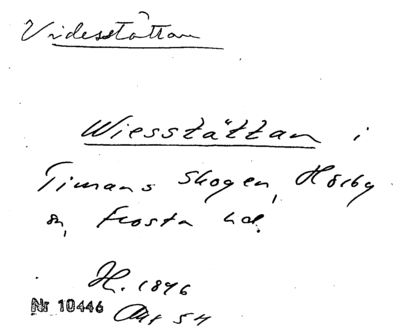 Videsstättan
Wiesstättan i
Timans skogen, Hörby
sn, Frosta hd.
H. 1896
Nr 10446
54